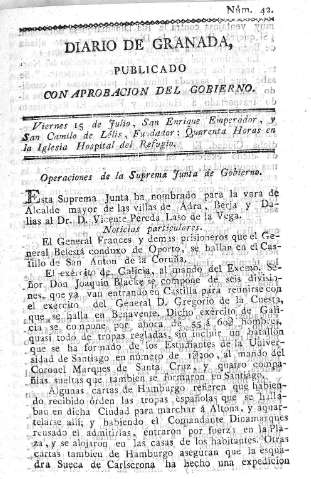 Núm. 42.
DIARIO DE GRANADA,
PUBLICADO
CON APROBACION DEL GOBIERNO.
Viernes 15 de Julio, San Enrique Emperador, y
San Camilo de Lélis, Fundador: Quarenta Horas en
la Iglesia Hospital del Refugio.
Operaciones de la Suprema Junta de Gobierno.
Esta Suprema Junta ha nombrado para la vara de
Alcalde mayor de las villas de Adra, Berja y Da-
lias al Dr. D. Vicente Pereda Laso de la Vega.
Noticias particulares.
El General Frances y demas prisioneros que el Ge-
neral Belestá conduxo de Oporto, se hallan en el Cas-
tillo de San Anton de la Coruña.
El exército de Galicia, al mando del Excmo. Señor
Don Joaquin Blacke se compone de seis divisio-
nes, que ya van entrando en Castilla para reunirse con
el exército del General D. Gregorio de la Cuesta,
que se halla en Benavente. Dicho exército de Gali-
cia se compone por ahora de 55 á 60@ hombres,
quasi todo de tropas regladas, sin incluir un batallon
que se ha formado de los Estudiantes de la Univer-
sidad de Santiago en número de al mando del
Coronel Marques de Santa Cruz, y quatro compa-
ñias sueltas que tambien se formaron en Santiago.
Algunas cartas de Hamburgo refieren que habien-
do recibido órden las tropas españolas que se halla-
ban en dicha Ciudad para marchar á Altona, y aquar-
telarse allí; y habiendo el Comandante Dinamarques
reusado el admitirlas, entraron por fuerza en la Pla-
za, y se alojaron en las casas de los habitantes. Otras
cartas tambien de Hamburgo aseguran que la esqua-
dra Sueca de Carlscrona ha hecho una expedicion